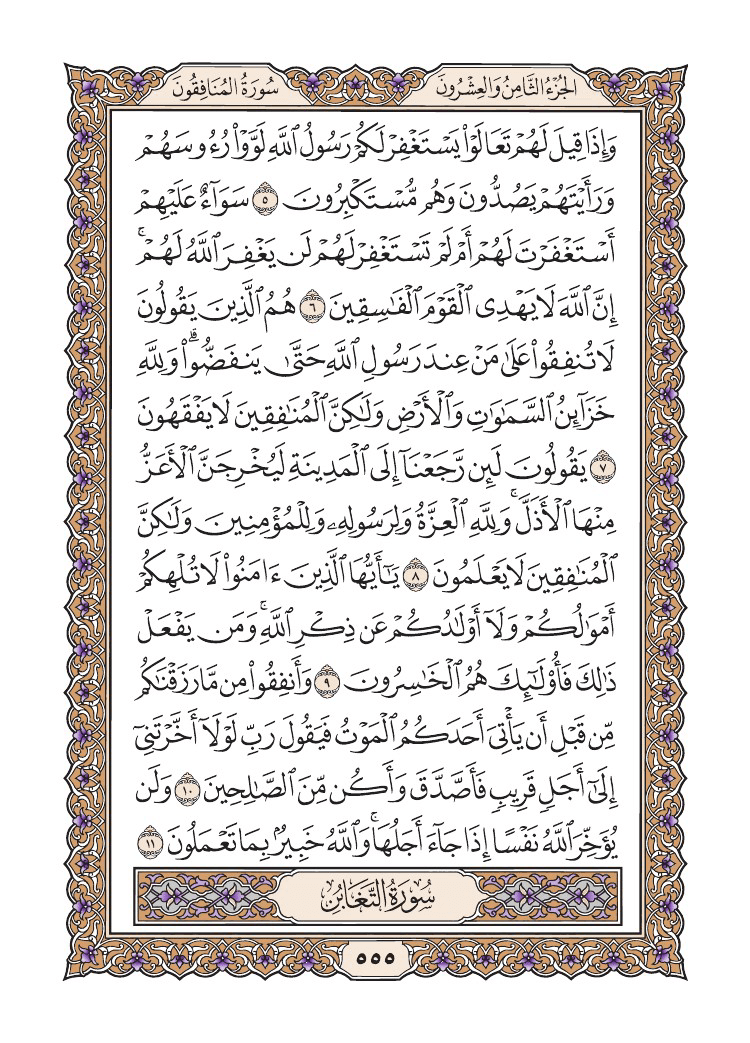 الجزء الثامن والعشرون
سورة المنافقون
وَإِذَا قِيلَ لَهُمْ تَعَالَوْا۟ يَسْتَغْفِرْ لَكُمْ رَسُولُ ٱللَّهِ لَوَّوْا۟ رُءُوسَهُمْ
وَرَأَيْتَهُمْ يَصُدُّونَ وَهُم مُّسْتَكْبِرُونَ ٥ سَوَآءٌ عَلَيْهِمْ
أَسْتَغْفَرْتَ لَهُمْ أَمْ لَمْ تَسْتَغْفِرْ لَهُمْ لَن يَغْفِرَ ٱللَّهُ لَهُمْ ۚ
إِنَّ ٱللَّهَ لَا يَهْدِى ٱلْقَوْمَ ٱلْفَـٰسِقِينَ ٦ هُمُ ٱلَّذِينَ يَقُولُونَ
لَا تُنفِقُوا۟ عَلَىٰ مَنْ عِندَ رَسُولِ ٱللَّهِ حَتَّىٰ يَنفَضُّوا۟ ۗ وَلِلَّهِ
خَزَآئِنُ ٱلسَّمَـٰوَٰتِ وَٱلْأَرْضِ وَلَـٰكِنَّ ٱلْمُنَـٰفِقِينَ لَا يَفْقَهُونَ
٧ يَقُولُونَ لَئِن رَّجَعْنَآ إِلَى ٱلْمَدِينَةِ لَيُخْرِجَنَّ ٱلْأَعَزُّ
مِنْهَا ٱلْأَذَلَّ ۚ وَلِلَّهِ ٱلْعِزَّةُ وَلِرَسُولِهِۦ وَلِلْمُؤْمِنِينَ وَلَـٰكِنَّ
ٱلْمُنَـٰفِقِينَ لَا يَعْلَمُونَ ٨ يَـٰٓأَيُّهَا ٱلَّذِينَ ءَامَنُوا۟ لَا تُلْهِكُمْ
أَمْوَٰلُكُمْ وَلَآ أَوْلَـٰدُكُمْ عَن ذِكْرِ ٱللَّهِ ۚ وَمَن يَفْعَلْ
ذَٰلِكَ فَأُو۟لَـٰٓئِكَ هُمُ ٱلْخَـٰسِرُونَ ٩ وَأَنفِقُوا۟ مِن مَّا رَزَقْنَـٰكُم
مِّن قَبْلِ أَن يَأْتِىَ أَحَدَكُمُ ٱلْمَوْتُ فَيَقُولَ رَبِّ لَوْلَآ أَخَّرْتَنِىٓ
إِلَىٰٓ أَجَلٍ قَرِيبٍ فَأَصَّدَّقَ وَأَكُن مِّنَ ٱلصَّـٰلِحِينَ ١٠ وَلَن
يُؤَخِّرَ ٱللَّهُ نَفْسًا إِذَا جَآءَ أَجَلُهَا ۚ وَٱللَّهُ خَبِيرٌۢ بِمَا تَعْمَلُونَ ١١
سُورَةُ التَّغَابُنِ
٥٥٥